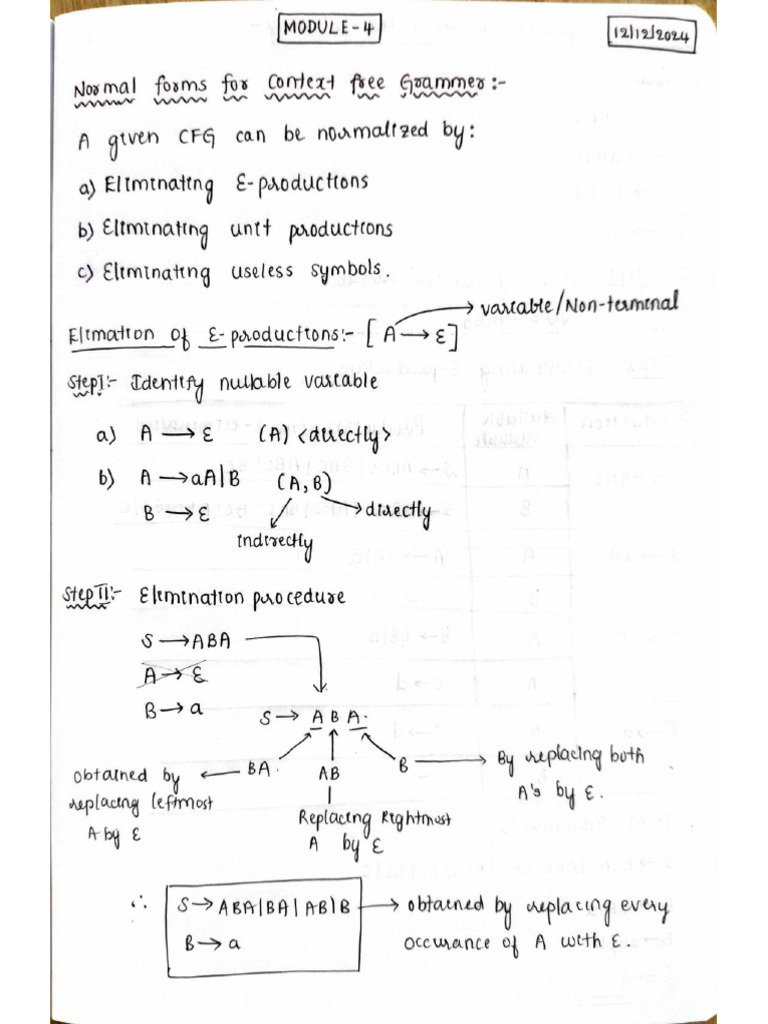 MODULE-4
12/12/2024
Normal forms for Context free Grammer:-
A given CFG can be normalized by:
a) Eliminating ε-productions
b) Eliminating unit productions
c) Eliminating useless symbols.
variable/Non-terminal
Elimation of ε-productions:- [A → ε]
Step I:- Identify nullable variable
a) A → ε (A) <directly>
b) A → aA|B (A, B)
B → ε
directly
indirectly
Step II:- Elimination procedure
S → ABA
A → ε
B → a
S → A B A.
BA. AB B
Obtained by replacing leftmost A by ε
Replacing Rightmost A by ε
By replacing both A's by ε.
∴ S → ABA|BA|AB|B → obtained by replacing every
B → a occurance of A with ε.